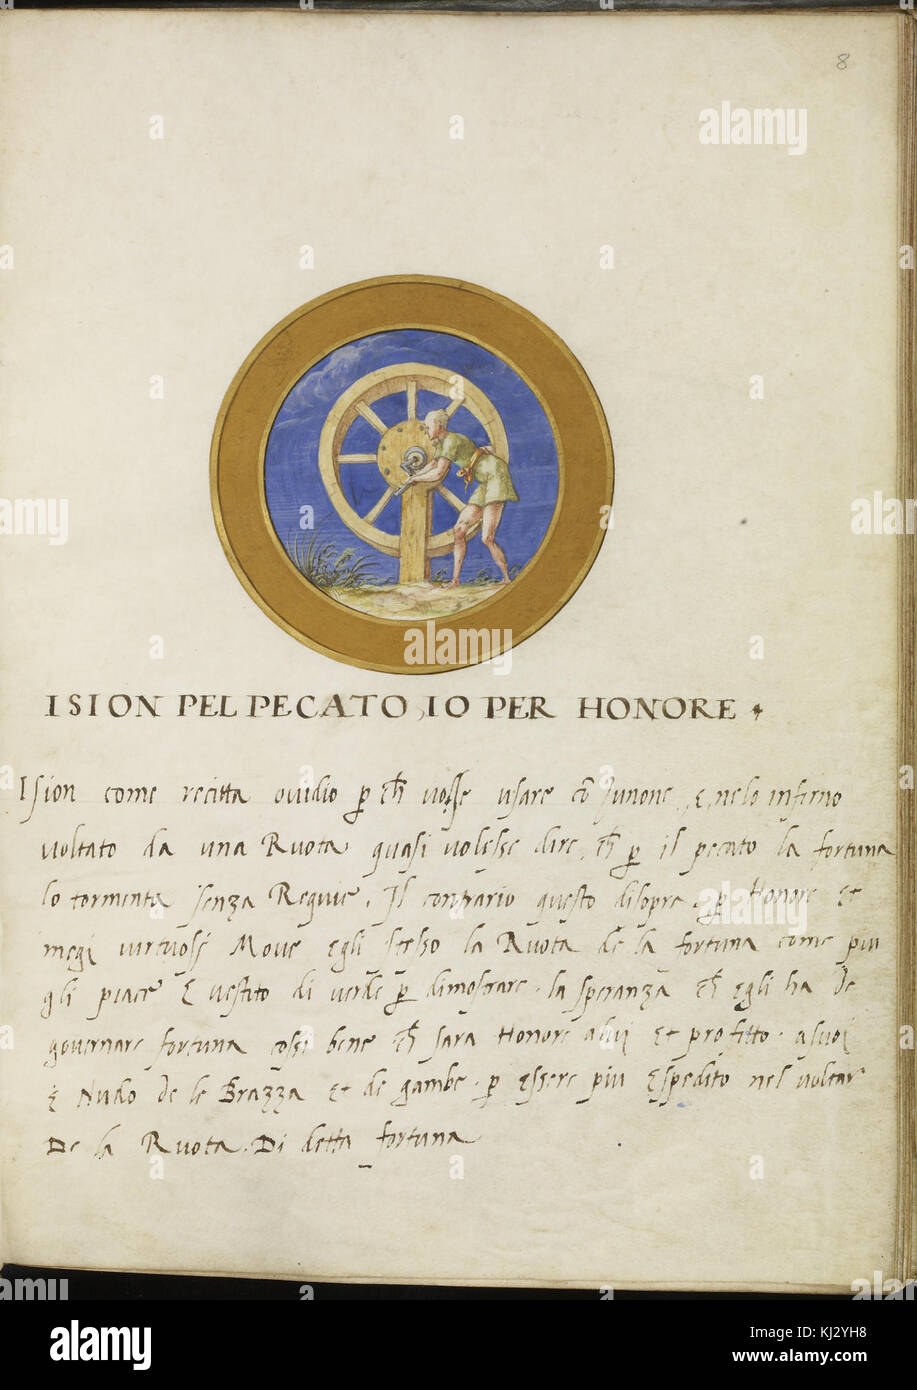 8
ISION PEL PECATO, IO PER HONORE
Ision come recitta ovidio p ch volsse usare cō Junone, e, nelo infirno
voltato da una Ruota quasi volesse dire, ch p il pecato la fortuna
lo tormenta senza Requie. Il contrario questo disopra. p Honore et
megi virtuosi Move egli stesso la Ruota de la fortuna come piu
gli piace E vestito di verde p dimostrare. la speranza ch egli ha De
governare fortuna cossi bene ch sara Honore a lui et profitto. a suoi
E Nudo de le Brazza et de gambe. p essere piu espedito nel voltar
De la Ruota. Di detta fortuna
alamy
Image ID: KJ2YH8
www.alamy.com